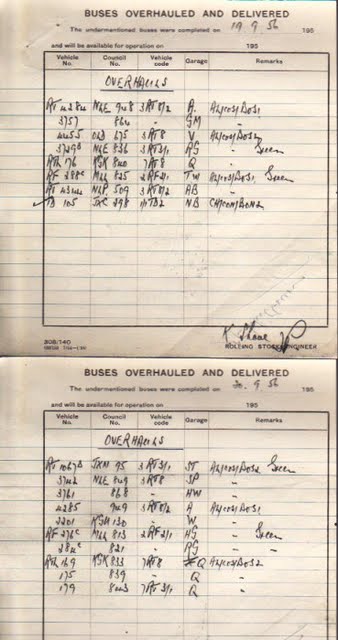 BUSES OVERHAULED AND DELIVERED
The undermentioned buses were completed on 19.9.56 195
and will be available for operation on 195
Vehicle No. Council No. Vehicle code Garage Remarks
OVERHAULS
NLE 948 3RT8/2 A.
3757 864 - GM "
4455 OLD 675 3RT8 V
NLE 836 3RT3/1 RG " Green
RTL 176 KGK 840 7RT8 Q "
RF 288c MLL 825 2RF2/1 TW Green
NLP 509 3RT8/2 AB "
TD 105 JXC 298 1/1TD2 NB
308/140
K. Shave
ROLLING STOCK ENGINEER
BUSES OVERHAULED AND DELIVERED
The undermentioned buses were completed on 20.9.56 195
and will be available for operation on 195
Vehicle No. Council No. Vehicle code Garage Remarks
OVERHAULS
JXN 95 3RT3/1 ST Green
NLE 849 3RT8 SP "
3761 868 - HW "
4285 949 3RT8/2 A
3201 KGU 130 - W "
RF 276c MLL 813 2RF2/1 HG " Green
284c 821 - RG " "
RTL 169 KGK 833 7RT8 Q
175 839 Q "
179 843 7RT3/1 Q "